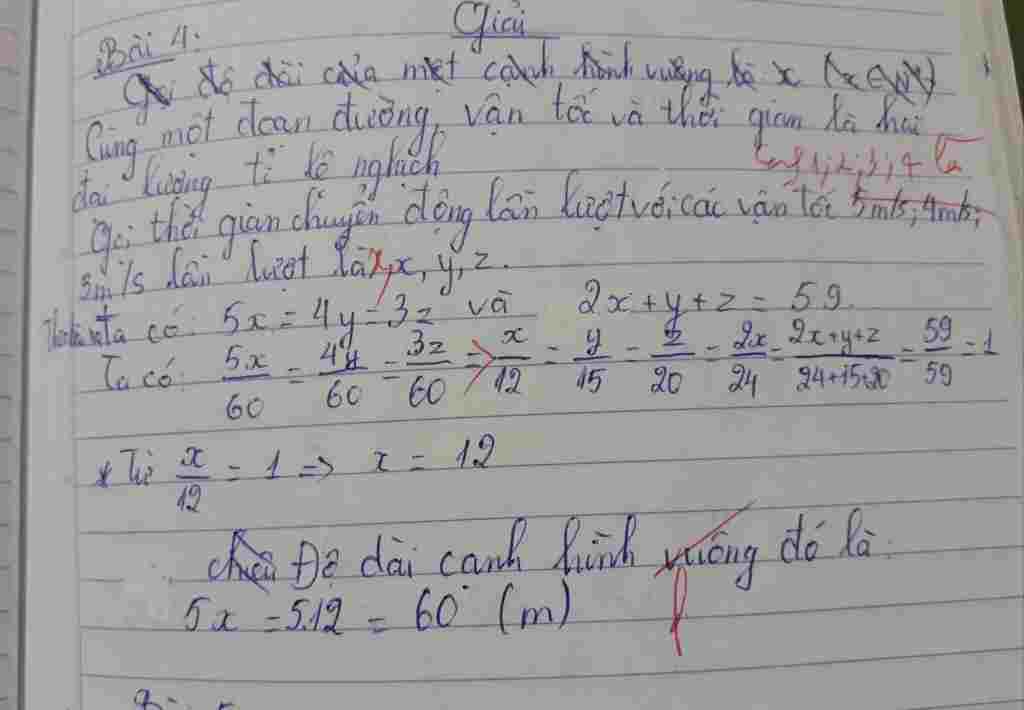 Giải
Bài 4:
Gọi độ dài của một cạnh hình vuông là x (x∈N*)
Cùng một đoạn đường, vận tốc và thời gian là hai
đại lượng tỉ lệ nghịch
cạnh 1, 2, 3, 4 là
Gọi thời gian chuyển động lần lượt với các vận tốc 5m/s; 4m/s;
3m/s lần lượt là x, x, y, z.
ta có: 5x = 4y = 3z và 2x + y + z = 59
Ta có: 5x/60 = 4y/60 = 3z/60 => x/12 = y/15 = z/20 = 2x/24 = 2x+y+z/24+15+20 = 59/59 = 1
* Từ x/12 = 1 => x = 12
Độ dài cạnh hình vuông đó là:
5x = 5.12 = 60 (m)